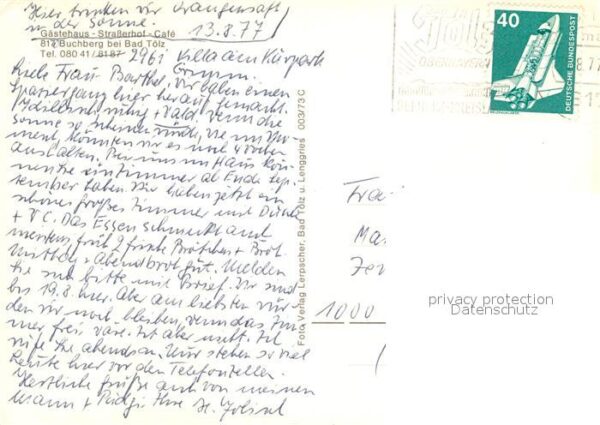 Hier trinken wir Orangensaft
in der Sonne. 13.8.77
Gästehaus - Straßerhof - Café
817 Buchberg bei Bad Tölz
Tel. 080 41 / 8187 2961 Villa am Kurpark
Liebe Frau Barthel. Wir haben einen
Spaziergang hier herauf gemacht.
+ Wald. Wenn die
Sonne so scheinen würde, wie im Mo-
ment, könnten wir es noch 4 Wochen
aushalten. Bei uns im Haus kön-
nen Sie ein Zimmer ab Ende Sep-
tember haben. Wir haben jetzt ein
schönes großes Zimmer mit Dusche
+ WC. Das Essen schmeckt auch
früh 2 frische Brötchen + Brot.
Mittag + Abendbrot gut. Melden
Sie sich bitte mit Brief. Wir sind
bis 19.8. hier. Aber am liebsten wür-
den wir noch bleiben, wenn das Zim-
mer frei wäre. Ist aber nicht. Ich
rufe Sie abends an. Nur stehen so viel
Leute hier vor den Telefonzellen.
Herzliche Grüße auch von meinem
Mann + Ihre
Foto Verlag Lerpscher, Bad Tölz u. Lenggries 003/73 C
40
DEUTSCHE BUNDESPOST
Fra
Ma
1000
privacy protection
Datenschutz